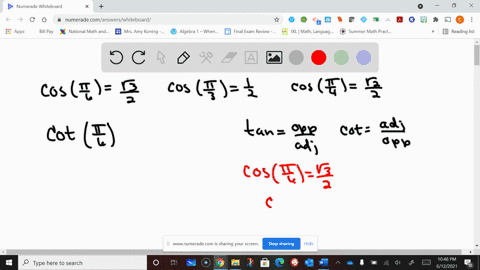 Numerade Whiteboard
numerade.com/answers/whiteboard/
Apps
Bill Pay
National Math and...
Mrs. Amy Koning -...
Algebra 1 – When...
Final Exam Review -...
IXL | Math, Languag...
Summer Math Pract...
Reading list
cos(π/6) = √3/2 cos(π/3) = 1/2 cos(π/4) = √2/2
cot(π/6) tan = opp/adj cot = adj/opp
cos(π/6) = √3/2
c
www.numerade.com is sharing your screen.
Stop sharing
Hide
Type here to search
10:48 PM
6/12/2021